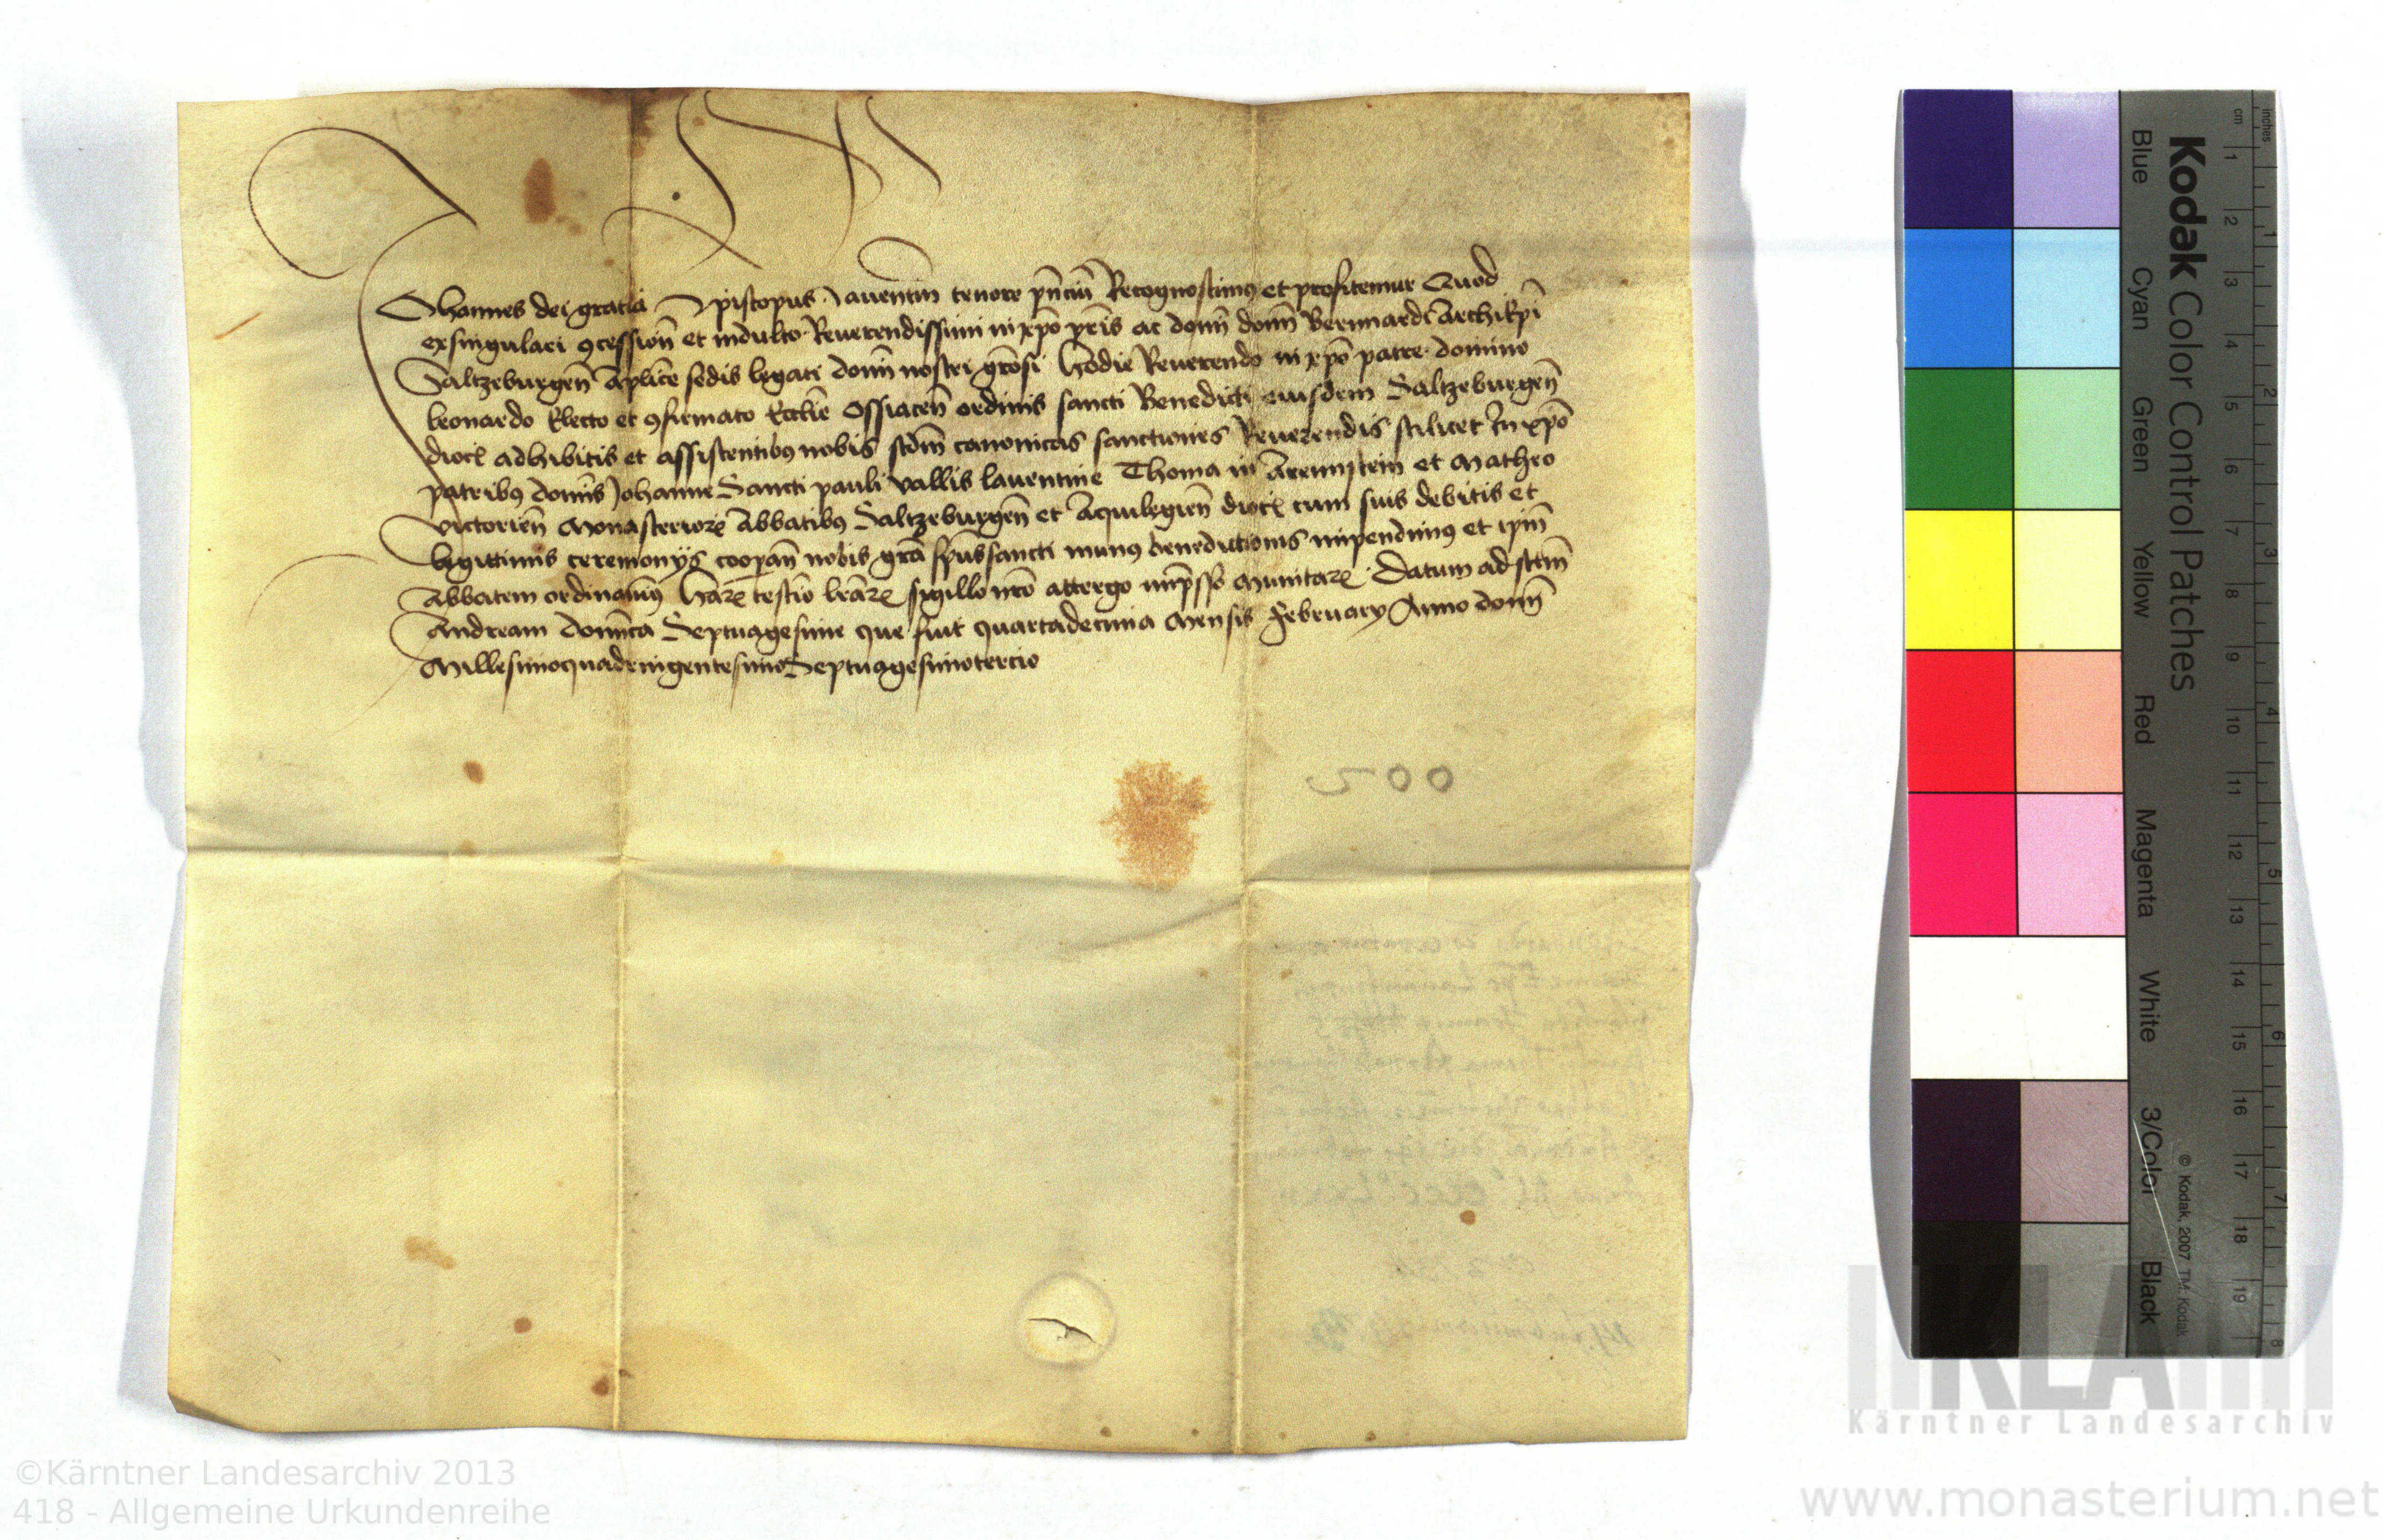 Johannes dei gratia Episcopus Lauentin tenore pn̄ciū Recognoscimus et profitemur Quod
ex singulari ꝯcession̄ et indulto Reuerendissimi in xp̄o pr̄is ac domī domī Bernnardi Archiep̄i
Saltzeburgen̄ Aplīce sedis legati domī nostri gr̄osi hodie Reuerendo in xp̄o patre domino
leonardo Electo et ꝯfirmato Eccl̄ie Ossiacen̄ ordinis sancti Benedicti eiusdem Saltzeburgen̄
dioc̄ adhibitis et assistentibꝰ nobis scd̄m canonicas sanctiones Reuerendis scilicet In xp̄o
patribꝰ domīs Johanne Sancti pauli vallis lauentine Thoma in Arennstein et Matheo
victorien̄ Monasteriorꝝ Abbatibꝰ Saltzeburgen̄ et Aquilegien̄ dioc̄ cum suis debitis et
legittimis ceremonijs cooꝑan̄ nobis gr̄a sp̄ussancti munꝰ benedictionis impendimꝰ et ip̄m̄
Abbatem ordinauimꝰ harꝝ testīo lr̄arꝝ sigillo nr̄o attergo imp̄sso munitarꝝ Datum ad sctm̄
Andream domīca Septuagesime que fuit quartadecima Mensis February Anno domī
Millesimoquadringentesimo Septuagesimotercio
200
Kodak Color Control Patches
Blue Cyan Green Yellow Red Magenta White 3/Color Black
© Kodak, 2007 TM: Kodak
inches 1 2 3 4 5 6 7 8
cm 1 2 3 4 5 6 7 8 9 10 11 12 13 14 15 16 17 18 19
KLA
Kärntner Landesarchiv
©Kärntner Landesarchiv 2013
418 - Allgemeine Urkundenreihe
www.monasterium.net